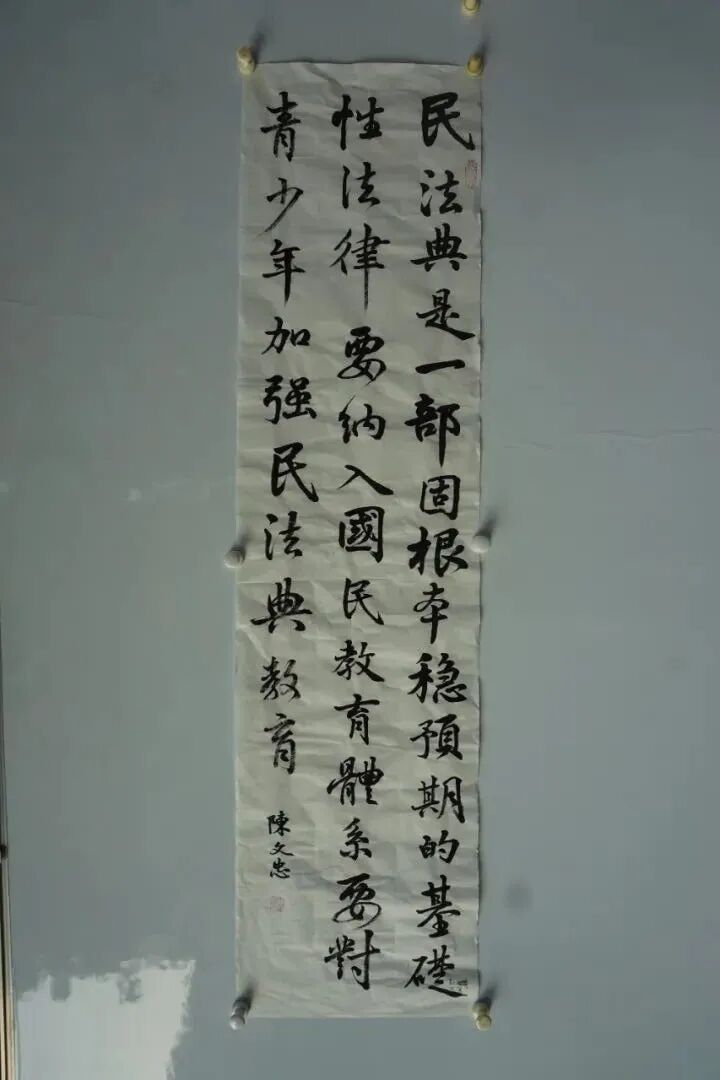 民法典是一部固根本稳預期的基礎
性法律要纳入國民教育體系要對
青少年加强民法典教育
陳文忠